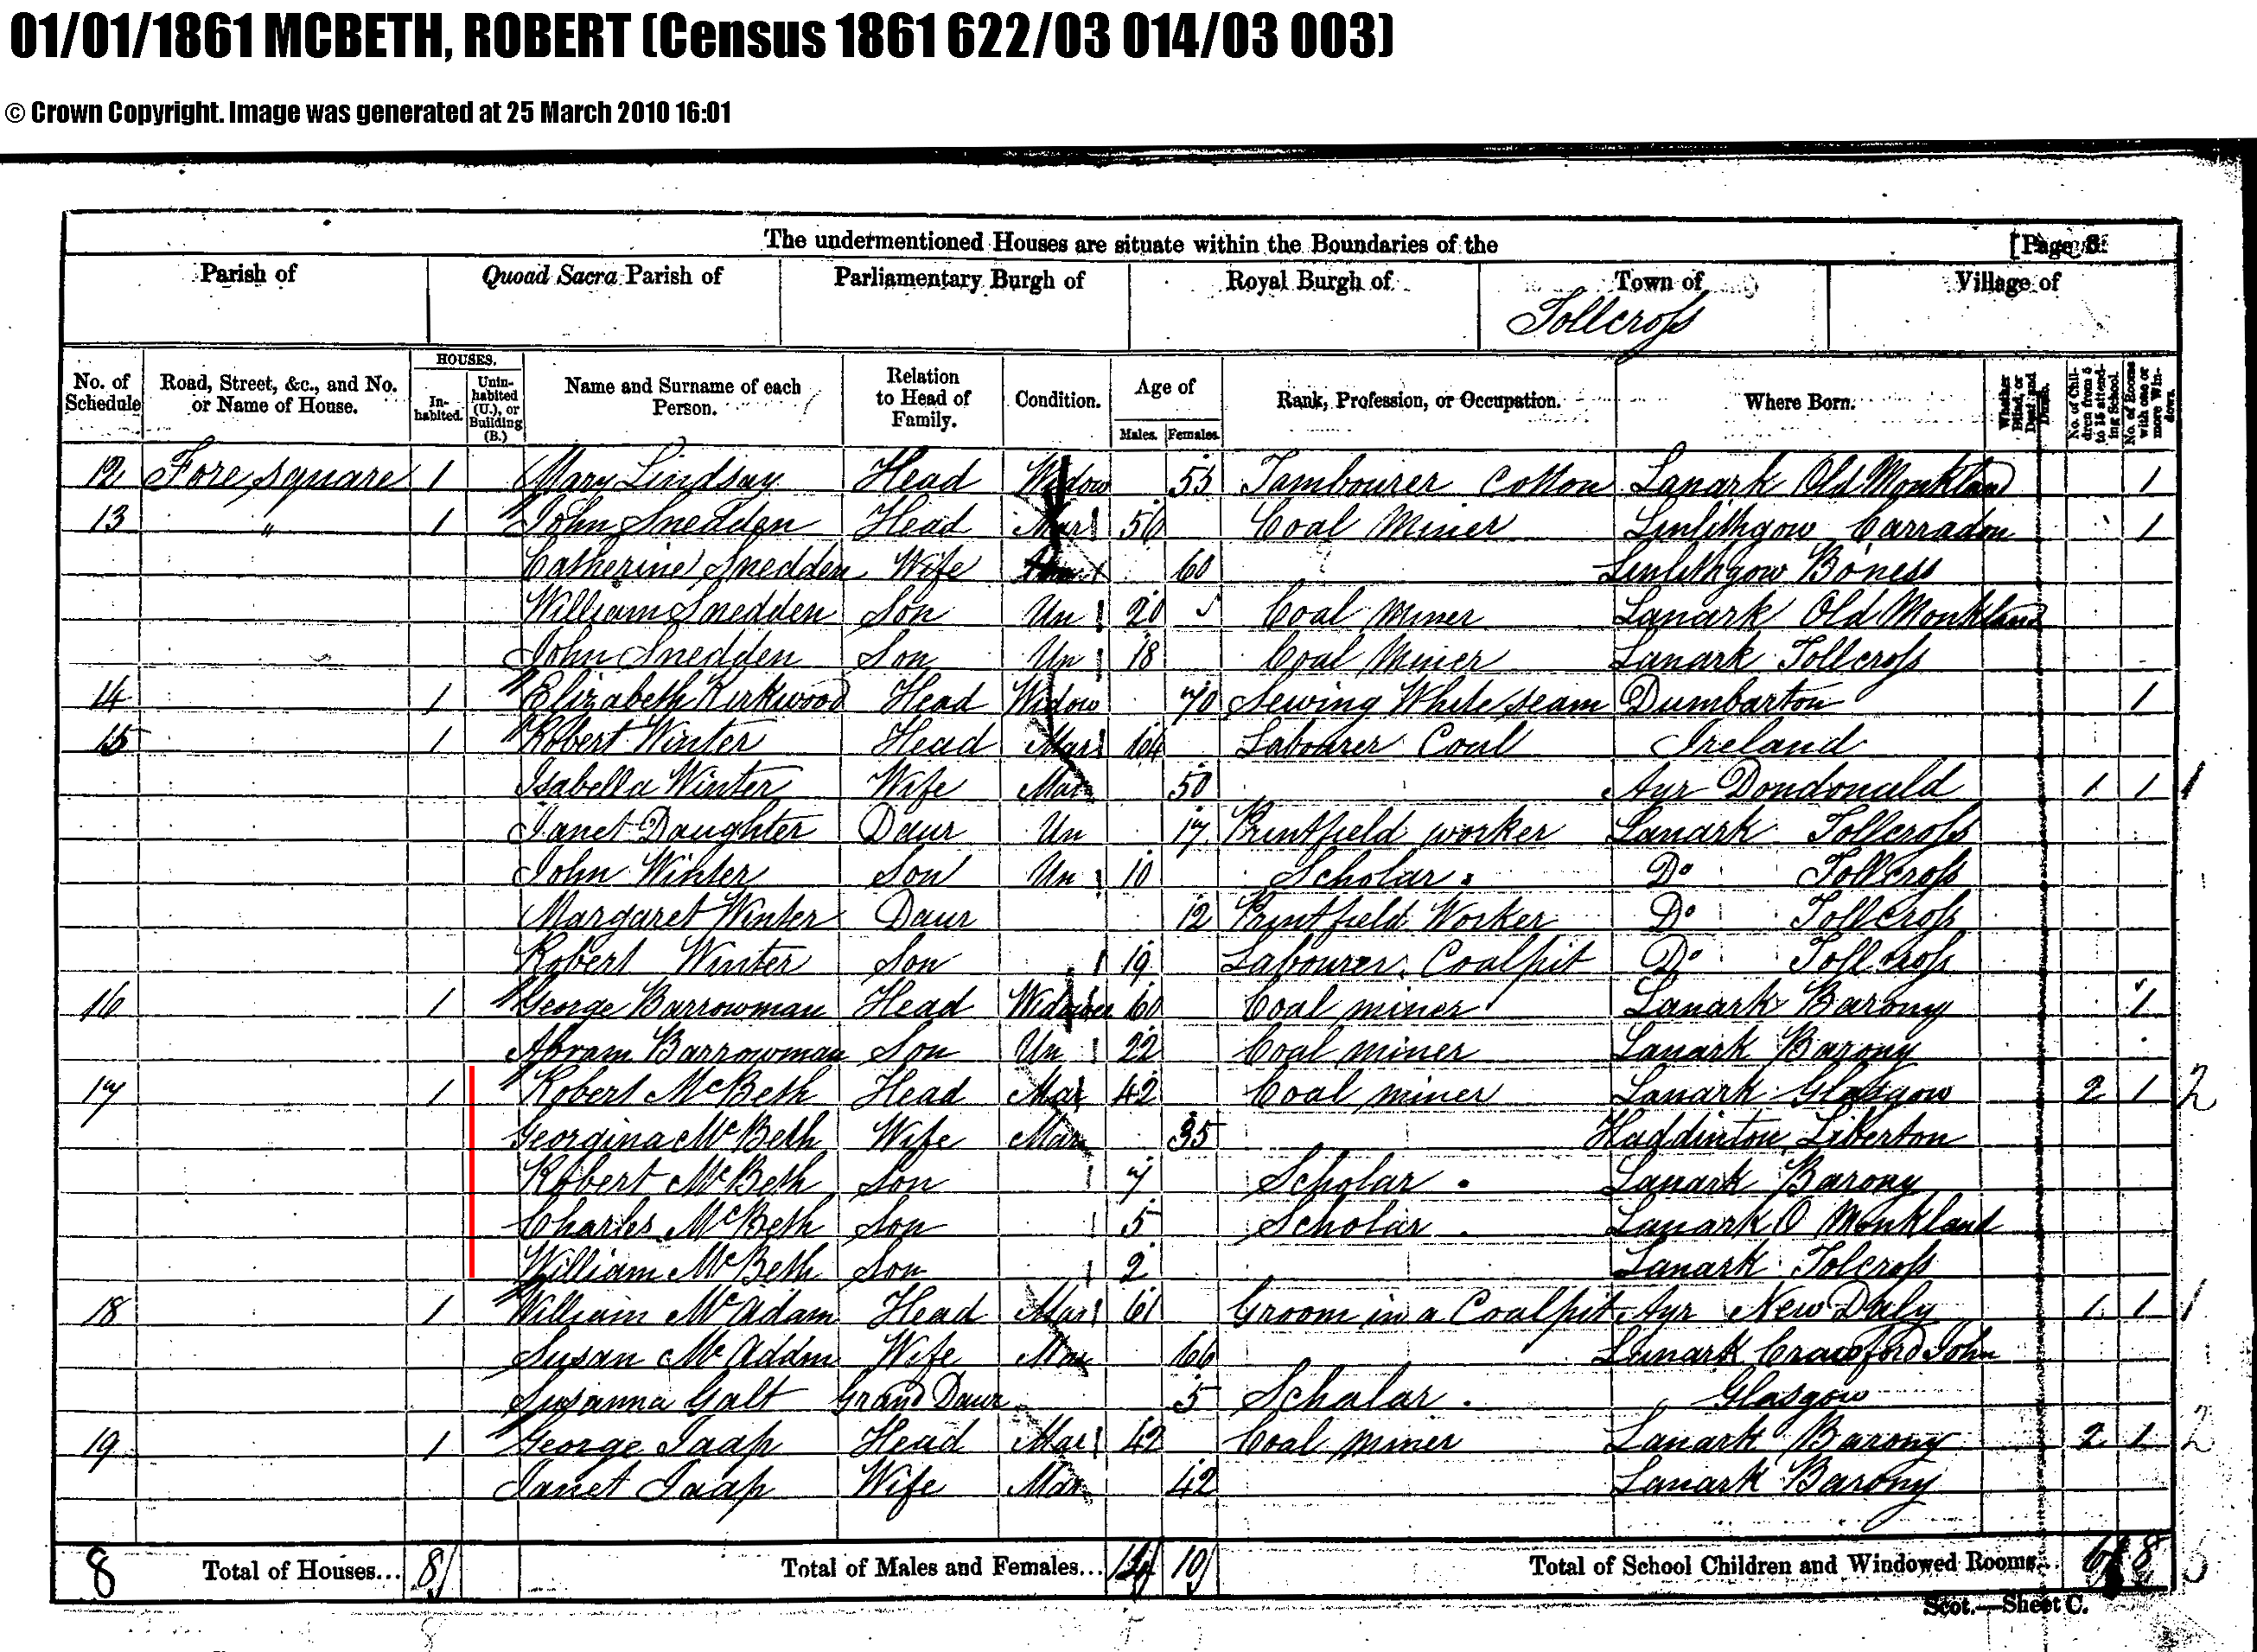 01/01/1861 MCBETH, ROBERT (Census 1861 622/03 014/03 003)
© Crown Copyright. Image was generated at 25 March 2010 16:01
The undermentioned Houses are situate within the Boundaries of the [Page 3.
Parish of Quoad Sacra Parish of Parliamentary Burgh of Royal Burgh of Town of Village of
Tollcross
No. of Schedule Road, Street, &c., and No. or Name of House. HOUSES. Inhabited. Uninhabited (U.), or Building (B.) Name and Surname of each Person. Relation to Head of Family. Condition. Age of Males. Females. Rank, Profession, or Occupation. Where Born. Whether Blind, or Deaf and Dumb. No. of Children from 5 to 15 attending School. No. of Rooms with one or more Windows.
12 Fore square 1 Mary Lindsay Head Widow 55 Tambourer Cotton Lanark Old Monkland 1
13 " 1 John Snedden Head Mar 56 Coal Miner Linlithgow Carradon 1
Catherine Snedden Wife 60 Linlithgow Boness
William Snedden Son Un 20 Coal Miner Lanark Old Monkland
John Snedden Son Un 18 Coal Miner Lanark Tollcross
14 1 Elizabeth Kirkwood Head Widow 70 Sewing White seam Dumbarton 1
15 1 Robert Winter Head Mar 64 Labourer Coal Ireland
Isabella Winter Wife Mar 50 Ayr Dondonald 1 1 1
Janet Daughter Daur Un 17 Printfield worker Lanark Tollcross
John Winter Son Un 10 Scholar Do Tollcross
Margaret Winter Daur 12 Printfield Worker Do Tollcross
Robert Winter Son 19 Labourer Coalpit Do Tollcross
16 1 George Barrowman Head Widower 60 Coal miner Lanark Barony 1
Abram Barrowman Son Un 22 Coal miner Lanark Barony
17 1 Robert McBeth Head Mar 42 Coal miner Lanark Glasgow 2 1 2
Georgina McBeth Wife Mar 35 Haddinton Liberton
Robert McBeth Son 7 Scholar Lanark Barony
Charles McBeth Son 5 Scholar Lanark O Monkland
William McBeth Son 2 Lanark Tolcross
18 1 William McAdam Head Mar 61 Groom in a Coalpit Ayr New Daly 1 1 1
Susan McAddm Wife Mar 66 Lanark Crawford John
Susanna Galt Grand Daur 5 Schalar " Glasgow
19 1 George Jaap Head Mar 42 Coal Miner Lanark Barony 2 1 2
Janet Jaap Wife Mar 42 Lanark Barony
8 Total of Houses... 8 Total of Males and Females... 14 10 Total of School Children and Windowed Rooms... 6 8
Scot.—Sheet C.